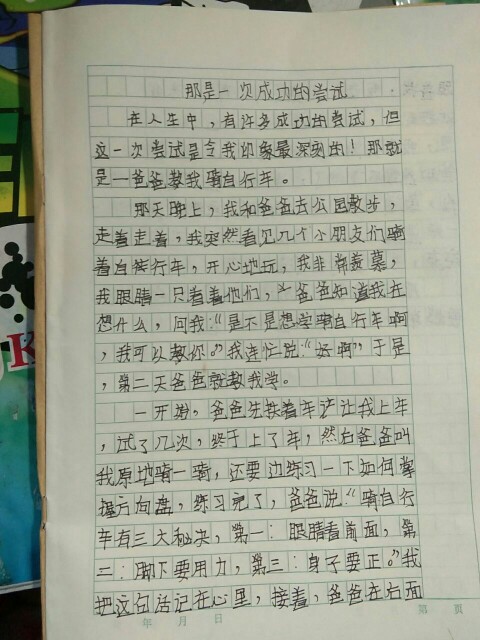 那是一次成功的尝试
在人生中，有许多成功的尝试，但
这一次尝试是令我印象最深刻的！那就
是一爸爸教我骑自行车。
那天晚上，我和爸爸去公园散步，
走着走着，我突然看见几个小朋友们骑
着自行车，开心地玩，我非常羡慕，
我眼睛一只看着他们，爸爸知道我在
想什么，问我：“是不是想学骑自行车啊
，我可以教你。”我连忙说：“好啊”于是
，第二天爸爸就教我学。
一开始，爸爸先扶着车让我上车
，试了几次，终于上了车，然后爸爸叫
我原地骑一骑，还要边练习一下如何掌
握方向盘，练习完了，爸爸说：“骑自行
车有三大秘决，第一：眼睛看前面，第
二：脚下要用力，第三：身子要正。”我
把这句话记在心里，接着，爸爸在右面
年 月 日 第 页
K